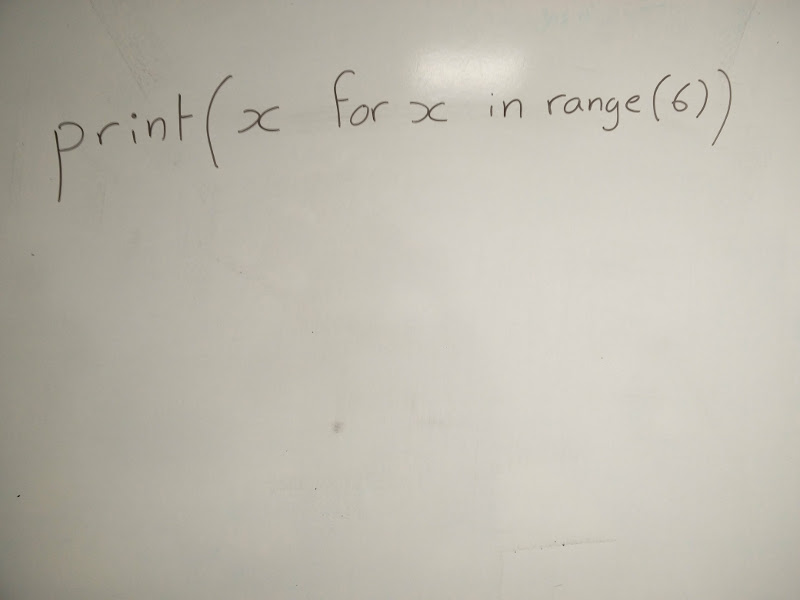 print(x for x in range(6))